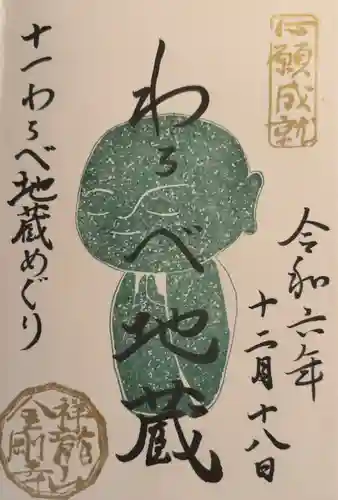 心願成就
令和六年
十二月十八日
わらべ地蔵
十一わらべ地蔵めぐり
金剛寺